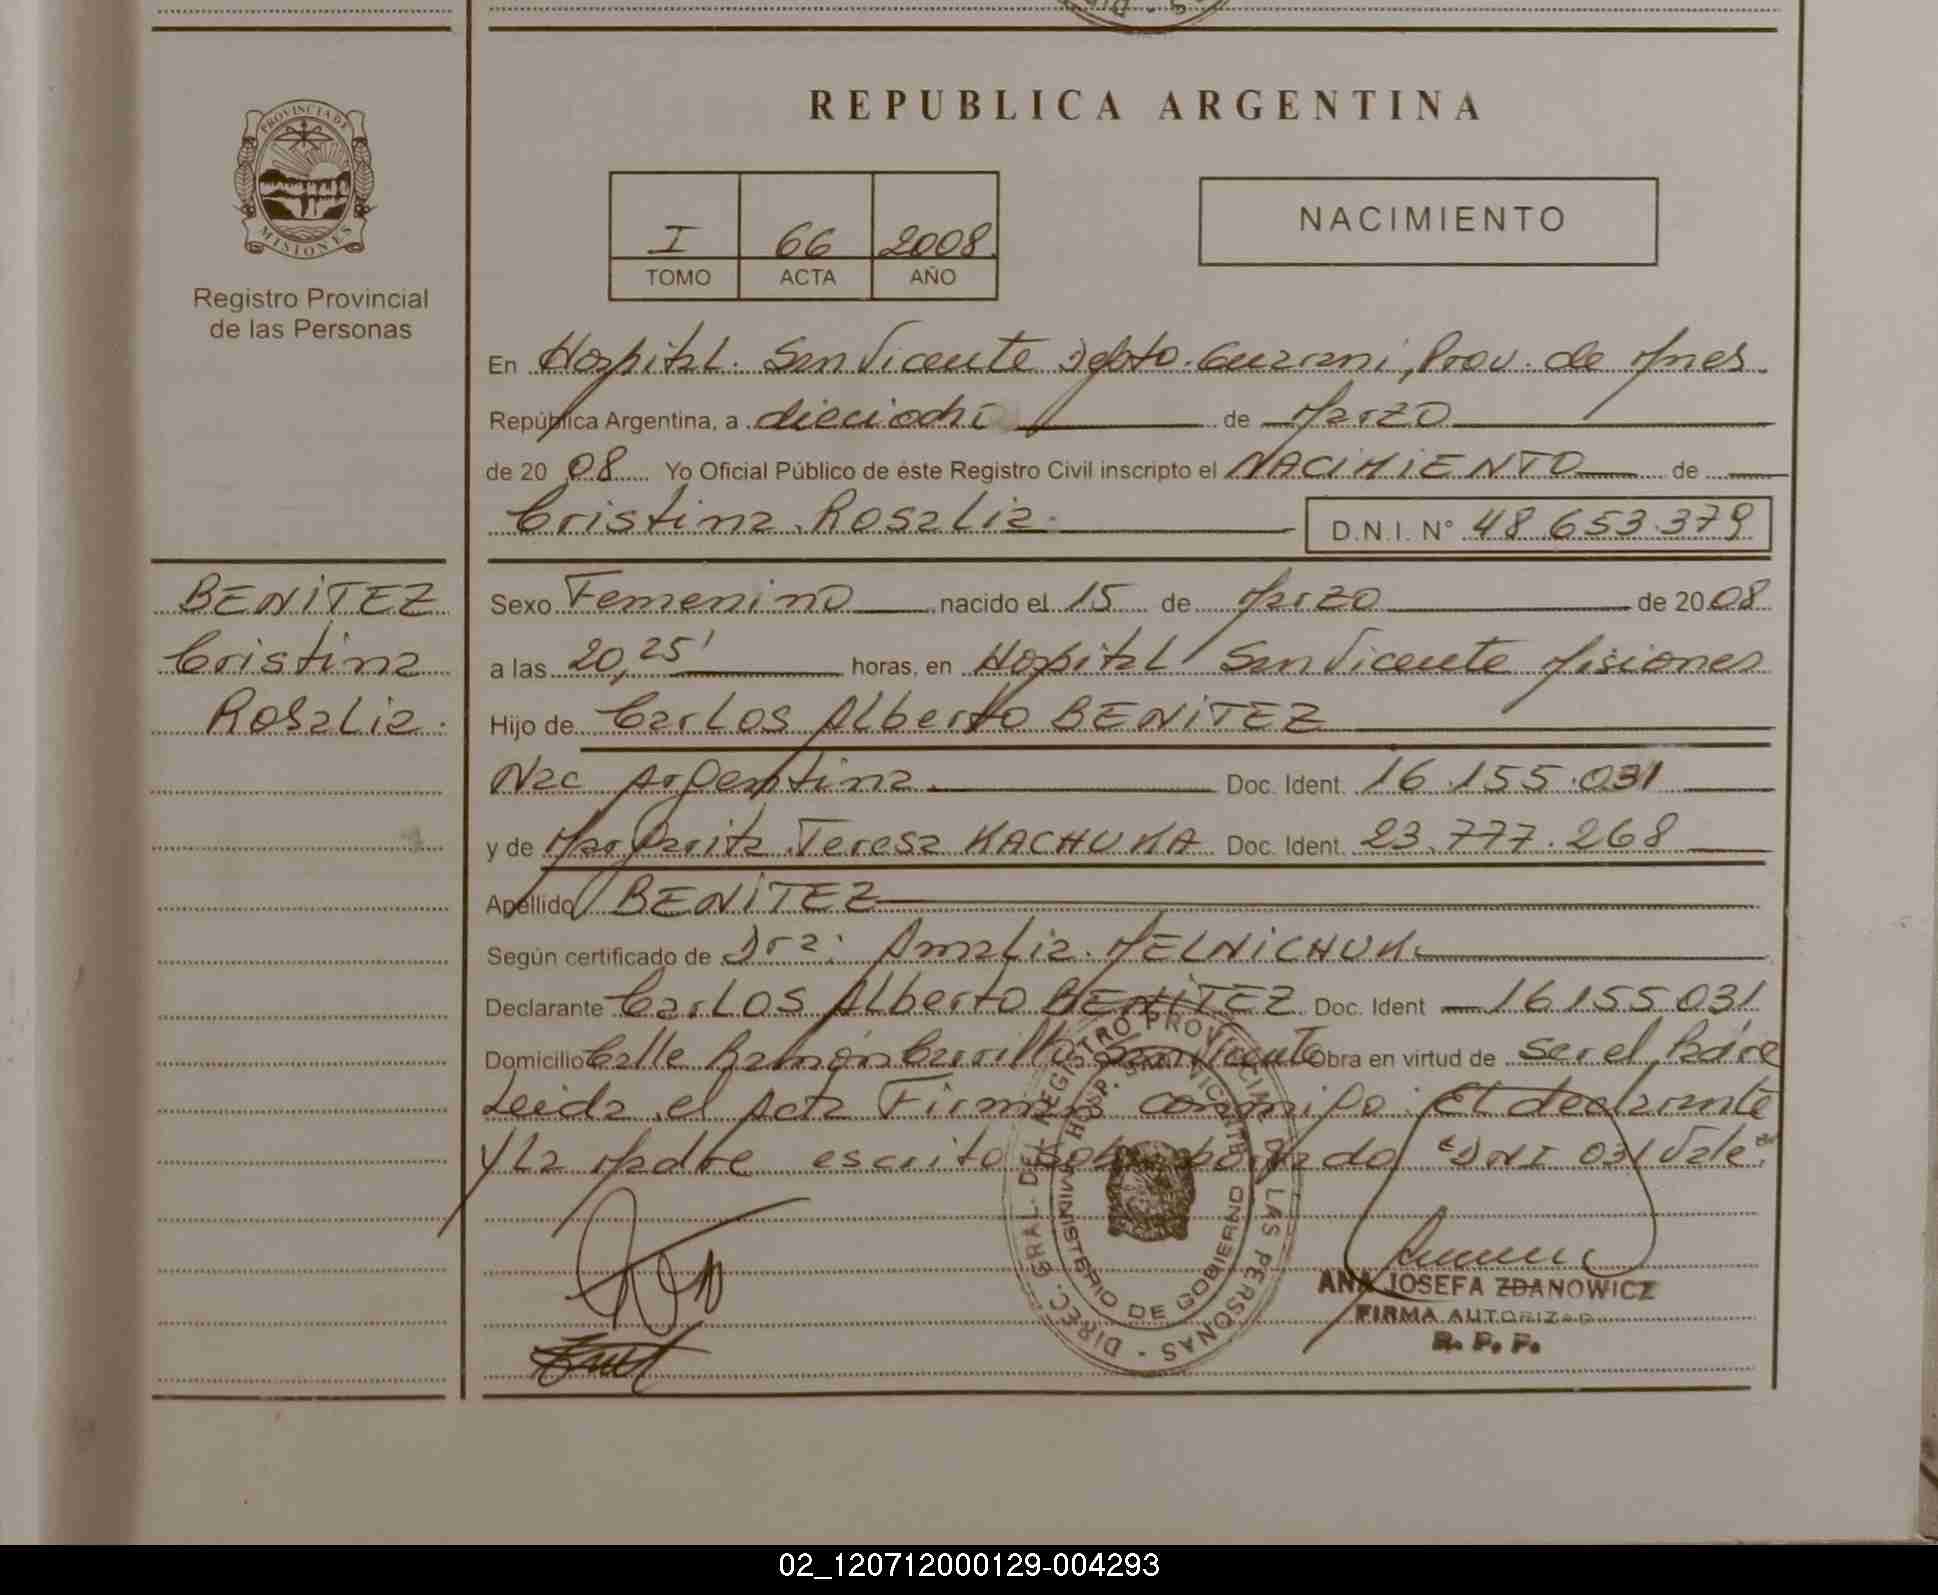 REPUBLICA ARGENTINA
PROVINCIA DE
MISIONES
Registro Provincial
de las Personas
I 66 2008
TOMO ACTA AÑO
NACIMIENTO
En Hospital San Vicente Dpto. Guarani, Prov. de Mnes
República Argentina, a dieciocho de Marzo
de 20 08 Yo Oficial Público de éste Registro Civil inscripto el NACIMIENTO de
Cristina Rosalia D.N.I. N° 48.653.379
BENITEZ
Cristina
Rosalia.
Sexo Femenino nacido el 15 de Marzo de 2008
a las 20,25' horas, en Hospital San Vicente Misiones
Hijo de Carlos Alberto BENITEZ
Nac Argentina Doc. Ident. 16.155.031
y de Margarita Teresa KACHUKA Doc. Ident. 23.777.268
Apellido BENITEZ
Según certificado de Dra: Amalia MELNICHUK
Declarante Carlos Alberto BENITEZ Doc. Ident 16.155.031
Domicilio Calle Ramón San Vicente Obra en virtud de ser el Padre
Leida el Acta Firman conmigo El declarante
y La Madre escrito sobre borrado "DNI 031 Vale"
DIREC. GRAL. DEL REGISTRO PROVINCIAL DE LAS PERSONAS
HOSP. SAN VICENTE
MINISTERIO DE GOBIERNO
ANA JOSEFA ZDANOWICZ
FIRMA AUTORIZADA
R. P. P.
02_120712000129-004293